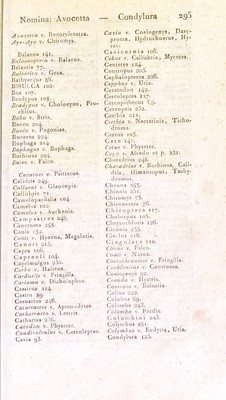 Nomina: Avocetta — Condylura 295
Avocetta v. Recurvirostra.
Aye-Aye v. Chiromys.
Balaena 141.
Balaenoptera v. Balaena.
Balanitis 77.
Balearica v. Grus.
Bathyergus 86.
BISULCA 102.
Bos 107.
Bradypus 106.
Bradypus v. Choloepus, Pro-
chilus.
Bubo v. Strix.
Bucco 204.
Bucco v. Pogonias.
Buceros 224.
Buphaga 214
Buphagus v. Buphaga.
Burhinus 224.
Buteo v. Falco.
Cacatoes v. Psittacus.
Calidris 249.
Callaeas v. Glaucopis.
Callithrix 71.
Camelopardalis 104
Camelus 103.
Camelus v. Auchenia.
Campestres 243.
Cancroma 258.
Canis 132.
Canis v. Hyaena, Megalotis.
Canori 215.
Capra 106.
Capreoli 104.
Caprimulgus 230.
Carbo v. Halieus.
Carduelis v. Fringilla
Cariama v. Dicholophus.
Cassicus 214.
Castor 89
Casuarius 246.
Catarractes v. Aptenodytes.
Catharactes v. Lestris.
Cathartes 236.
Catodon v. Physeter.
Caudivolvulus v. Cercoleptes.
Cavia 93.
Cavia v. Coelogenys, Dasy-
procta, Hydrochoerus, Hy-
rax.
Cavicornia 106.
Cebus v. Callithrix, Mycetes.
Centetes 124.
Centropus 205.
Cephalopterus 226.
Cepphus v. Uria.
Cerastes 142.
Cercoleptes 127.
Cercopithecus 69.
Cereopsis 232.
Certhia 211.
Certhia v. Nectarinia, Ticho-
droma.
Cervus 105.
Cete 141.
Cetus v. Physeter.
Ceyx v. Alcedo et p. 231.
Charadrius 248.
Charadrius v. Burhinus, Calli-
dris, Himantopus, Tachy-
dromus.
Chauna 253.
Chionis 251.
Chiromys 73.
Chironectes 86.
Chiroptera 117.
Choloepus 108.
Chrysochloris 126.
Ciconia 255.
Cinclus 218.
Cingulata 110.
Circus v. Falco.
Coati v. Nasua.
Coccothraustes v. Fringilla.
Cochlearius v. Cancroma.
Coelogenys 92.
Coendu v. Hystrix.
Coereus v. Balanitis.
Colius 220.
Colobus 69.
Columba 243.
Columba v. Perdix.
Columbini 243.
Colymbus 261.
Colymbus v. Eudytes, Uria.
Condylura 125.